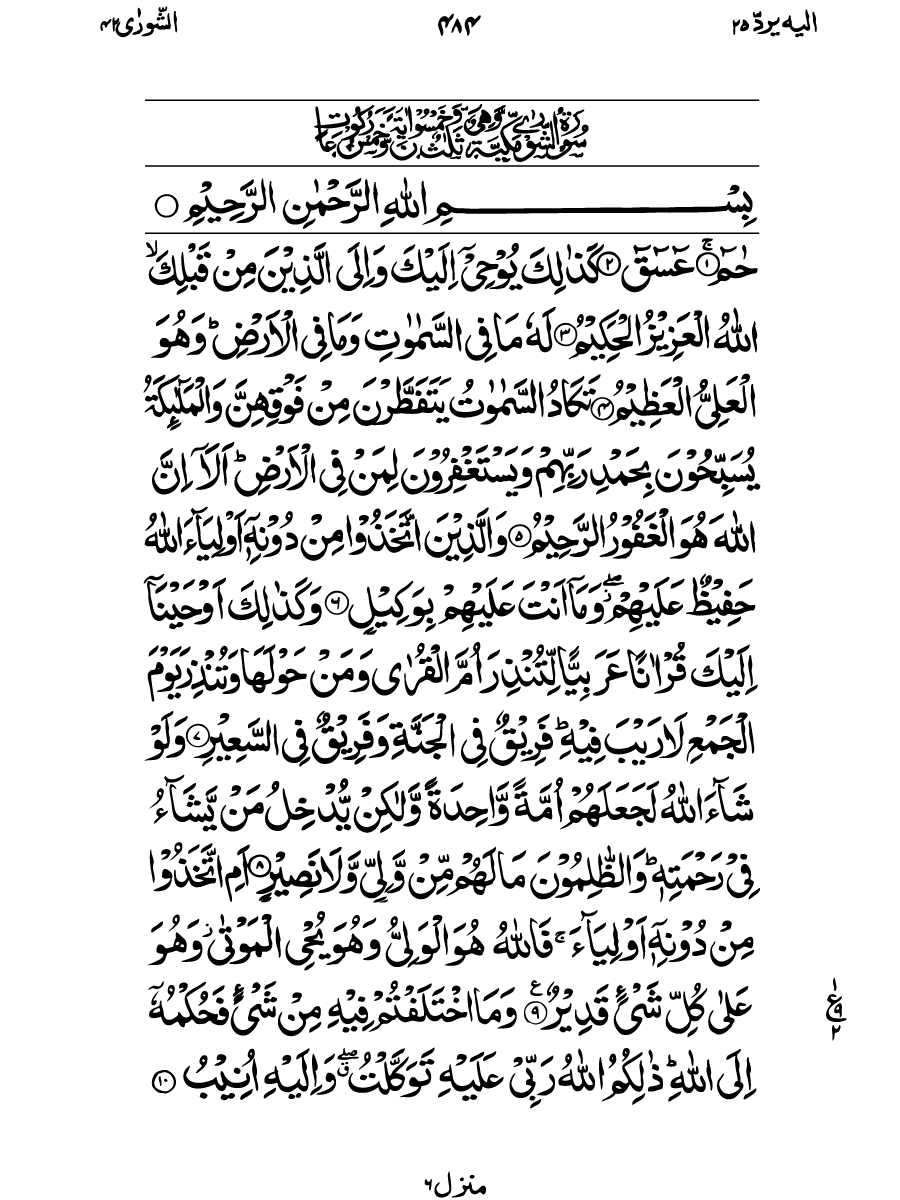 الیه یردّ ۲۵
۴۸۴
الشّورٰی ۴۲
سُوْرَةُ الشُّوْرٰى مَكِّيَّةٌ وَّهِيَ ثَلٰثٌ وَّخَمْسُوْنَ اٰيَةً وَّخَمْسُ رُكُوْعَاتٍ
بِسْمِ اللّٰهِ الرَّحْمٰنِ الرَّحِيْمِ ۝
حٰمٓ ۚ﴿۱﴾ عٓسٓقٓ ﴿۲﴾ كَذٰلِكَ يُوْحِيْۤ اِلَيْكَ وَاِلَى الَّذِيْنَ مِنْ قَبْلِكَ ۙ
اللّٰهُ الْعَزِيْزُ الْحَكِيْمُ ﴿۳﴾ لَهٗ مَا فِي السَّمٰوٰتِ وَمَا فِي الْاَرْضِ ؕ وَهُوَ
الْعَلِيُّ الْعَظِيْمُ ﴿۴﴾ تَكَادُ السَّمٰوٰتُ يَتَفَطَّرْنَ مِنْ فَوْقِهِنَّ وَالْمَلٰٓئِكَةُ
يُسَبِّحُوْنَ بِحَمْدِ رَبِّهِمْ وَيَسْتَغْفِرُوْنَ لِمَنْ فِي الْاَرْضِ ؕ اَلَاۤ اِنَّ
اللّٰهَ هُوَ الْغَفُوْرُ الرَّحِيْمُ ﴿۵﴾ وَالَّذِيْنَ اتَّخَذُوْا مِنْ دُوْنِهٖۤ اَوْلِيَآءَ اللّٰهُ
حَفِيْظٌ عَلَيْهِمْ ۖ٘ وَمَاۤ اَنْتَ عَلَيْهِمْ بِوَكِيْلٍ ﴿۶﴾ وَكَذٰلِكَ اَوْحَيْنَاۤ
اِلَيْكَ قُرْاٰنًا عَرَبِيًّا لِّتُنْذِرَ اُمَّ الْقُرٰى وَمَنْ حَوْلَهَا وَتُنْذِرَ يَوْمَ
الْجَمْعِ لَا رَيْبَ فِيْهِ ؕ فَرِيْقٌ فِي الْجَنَّةِ وَفَرِيْقٌ فِي السَّعِيْرِ ﴿۷﴾ وَلَوْ
شَآءَ اللّٰهُ لَجَعَلَهُمْ اُمَّةً وَّاحِدَةً وَّلٰكِنْ يُّدْخِلُ مَنْ يَّشَآءُ
فِيْ رَحْمَتِهٖ ؕ وَالظّٰلِمُوْنَ مَا لَهُمْ مِّنْ وَّلِيٍّ وَّلَا نَصِيْرٍ ﴿۸﴾ اَمِ اتَّخَذُوْا
مِنْ دُوْنِهٖۤ اَوْلِيَآءَ ۚ فَاللّٰهُ هُوَ الْوَلِيُّ وَهُوَ يُحْيِ الْمَوْتٰى ؗ وَهُوَ
عَلٰى كُلِّ شَيْءٍ قَدِيْرٌ ﴿۹﴾ ع وَمَا اخْتَلَفْتُمْ فِيْهِ مِنْ شَيْءٍ فَحُكْمُهٗۤ
ع ۹ ۲
اِلَى اللّٰهِ ؕ ذٰلِكُمُ اللّٰهُ رَبِّيْ عَلَيْهِ تَوَكَّلْتُ ۖۗ وَاِلَيْهِ اُنِيْبُ ﴿۱۰﴾
منزل ۶